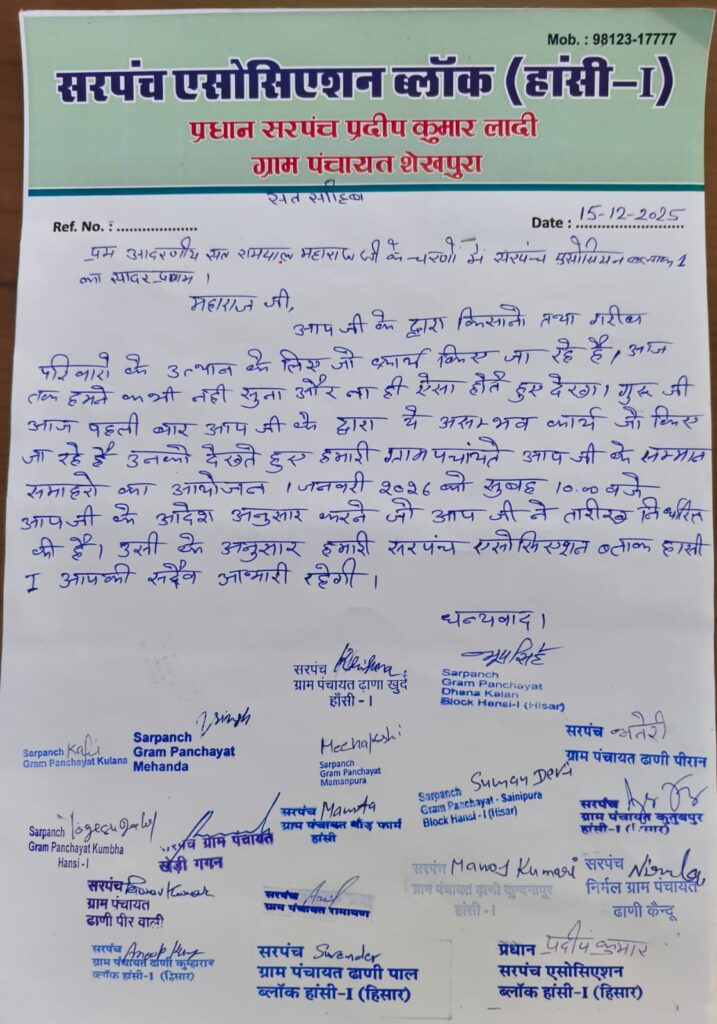 Mob. : 98123-17777
सरपंच एसोसिएशन ब्लॉक (हांसी-I)
प्रधान सरपंच प्रदीप कुमार लादी
ग्राम पंचायत शेखपुरा
सत साहिब
Ref. No. : ....................
Date : 15-12-2025
प्रम आदरणीय सत रामपाल महाराज जी के चरणों में सरपंच एसोसियन ब्लाक 1
का सादर प्रणाम ।
महाराज जी,
आप जी के द्वारा किसानो तथा गरीब
परिवारो के उत्थान के लिए जो कार्य किए जा रहे है, आज
तक हमने कभी नही सुना और ना ही ऐसा होते हुए देखा। गुरू जी
आज पहली बार आप जी के द्वारा ये असम्भव कार्य जो किए
जा रहे है उनको देखते हुए हमारी ग्रामपचांयते आप जी के सम्मान
समाहरो का आयोजन 1 जनवरी 2026 को सुबह 10.00 बजे
आपजी के आदेश अनुसार करने जो आप जी ने तारीख निर्धारित
की है। उसी के अनुसार हमारी सरपंच एसोसिएशन ब्लाक हासी
I आपकी सदैव आभारी रहेगी ।
धन्यवाद ।
सरपंच
ग्राम पंचायत ढाणा खुर्द
हाँसी - I
Sarpanch
Gram Panchayat
Dhana Kalan
Block Hansi-I (Hisar)
Sarpanch
Gram Panchayat Kulana
Sarpanch
Gram Panchayat
Mehanda
Meenakshi
Sarpanch
Gram Panchayat
Mamanpura
सरपंच
ग्राम पंचायत ढाणी पीरान
Suman Devi
Sarpanch
Gram Panchayat - Sainipura
Block Hansi-I (Hisar)
सरपंच
ग्राम पंचायत कुतुबपुर
हांसी-I (हिसार)
Sarpanch
Gram Panchayat Kumbha
Hansi - I
सरपंच ग्राम पंचायत
खेड़ी गगन
सरपंच Mamta
ग्राम पंचायत बीड़ फार्म
हांसी
सरपंच
ग्राम पंचायत
ढाणी पीर वाली
सरपंच
ग्राम पंचायत रामायण
सरपंच Manoj Kumari
ग्राम पंचायत ढाणी कुन्दनापुर
हांसी - I
सरपंच Nirmla
निर्मल ग्राम पंचायत
ढाणी केन्दू
सरपंच
ग्राम पंचायत ढाणी कुम्हारान
ब्लॉक हांसी-I (हिसार)
सरपंच Surender
ग्राम पंचायत ढाणी पाल
ब्लॉक हांसी-I (हिसार)
प्रधान प्रदीप कुमार
सरपंच एसोसिएशन
ब्लॉक हांसी-I (हिसार)